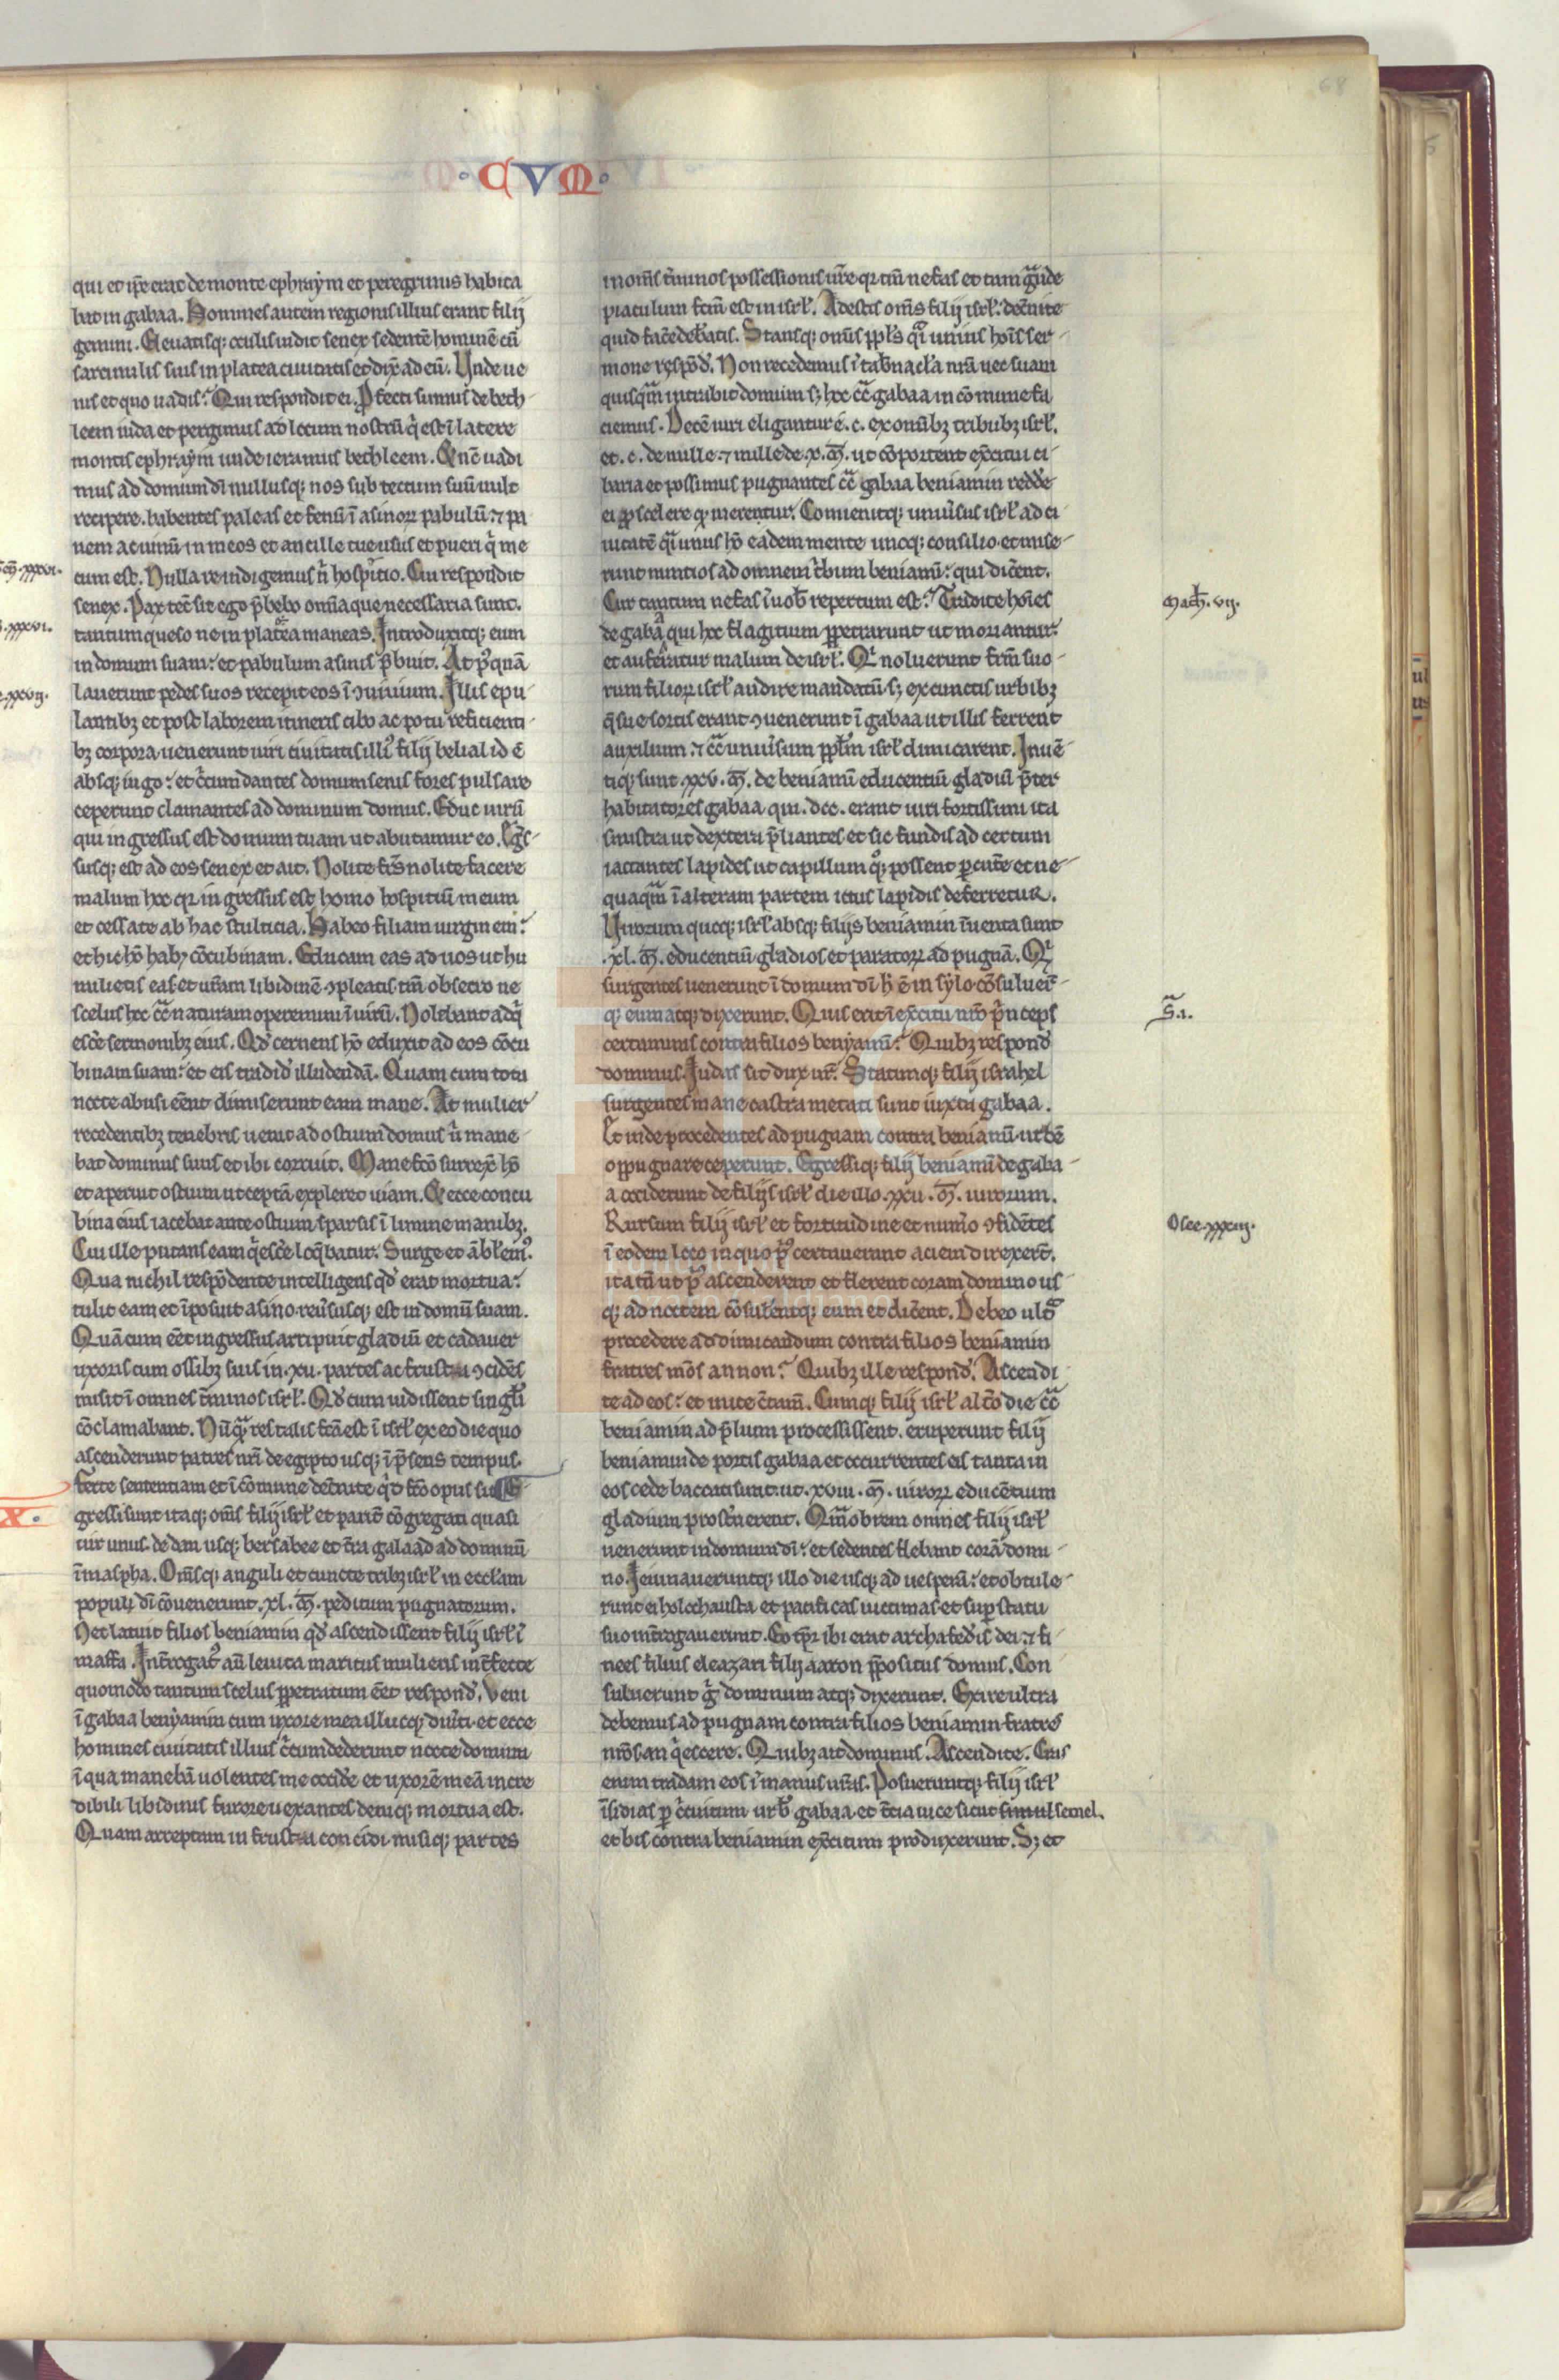 68
· C V M ·
qui et ip̄e erat de monte ephraẏm et peregrinus habita
bat in gabaa. Homines autem regionis illius erant filij
gemini. Eleuatisq; oculis uidit senex sedentē hominē cū
sarcinulis suis in platea ciuitatis et dix̄ ad eū. Unde ue
nis et quo uadis? Qui respondit ei. Pfecti sumus de beth
leem iuda et pergimus ad locum nostrū q̇ est ī latere
montis ephraẏm unde ieramus bethleem. Et nc̄ uadi
mus ad domum dī nullusq; nos sub tectum suū uult
recipere. habentes paleas et fenū ī asinoꝝ pabulū ⁊ pa
nem ac uinū in meos et ancille tue usus et pueri q̇ me
cum est. Nulla re indigemus n̄ hospicio. Cui respondit
senex. Pax tec̄ sit ego p̄bebo om̄ia que necessaria sunt.
tantum queso ne in platea maneas. Introduxitq; eum
in domum suam: et pabulum asinis p̄buit. At pꝰquā
lauerunt pedes suos recepit eos ī ꝯuiuium. Illis epu
lantibꝫ et post laborem itineris cibo ac potu reficienti
bꝫ corpora uenerunt uiri ciuitatis illiꝰ filij belial id ē
absq; iugo: et c̄cumdantes domum senis fores pulsare
ceperunt clamantes ad dominum domus. Educ uirū
qui ingressus est domum tuam ut abutamur eo. Egs̄
susq; est ad eos senex et ait. Nolite frs̄ nolite facere
malum hoc qꝛ ingressus est homo hospitiū meum
et cessate ab hac stulticia. Habeo filiam uirginem:
et hic hō habꝫ cōcubinam. Educam eas ad uos ut hu
milietis eas et ur̄am libidinē ꝯpleatis. tm̄ obsecro ne
scelus hoc cc̄ naturam operemini ī uirū. Nolebant adq̇
esc̄e sermonibꝫ eius. Qd̄ cernens hō eduxit ad eos cōcu
binam suam: et eis tradid̄ illudendā. Quam cum tota
nocte abusi ēent dimiserunt eam mane. At mulier
recedentibꝫ tenebris uenit ad ostium domus u̇ mane
bat dominus suus et ibi corruit. Mane fcō surrex̄ hō
et aperuit ostium ut ceptā expleret uiam. Et ecce concu
bina eius iacebat ante ostium sparsis ī limine manibꝫ.
Cui ille putans eam q̇esc̄e loq̄batur. Surge et ābl̄emꝰ.
Qua nichil respōdente intelligens qd̄ erat mortua:
tulit eam et īposuit asino reuersusq; est in domū suam.
Quā cum ēet ingressus arripuit gladiū et cadauer
uxoris cum ossibꝫ suis in .xii. partes ac frusta ꝯcidēs
misit ī omnes t̄minos isrl̄. Qd̄ cum uidissent singl̄i
cōclamabant. Nūq̄ res talis fcā est ī isrl̄ ex eo die quo
ascenderunt patres nr̄i de egipto usq; ī p̄sens tempus.
ferte sententiam et ī cōmune dec̄nite q̇d fcō opus sit. E
gressi sunt itaq; om̄s filij isrl̄ et parit̄ cōgregati quasi
uir unus. de dan usq; bersabee et t̄ra galaad ad dominū
ī maspha. Om̄sq; anguli et cuncte tribꝫ isrl̄ in eccl̄am
populi dī cōuenerunt .xl. m̄. peditum pugnatorum.
Nec latuit filios beniamin qd̄ ascendissent filij isrl̄ ī
massa. Int̄rogatꝰ aū leuita maritus mulieris int̄fecte
quomodo tantum scelus ꝑpetratum ēet respond̄. Veni
ī gabaa benẏamin cum uxore mea illucq; diu̇ti. et ecce
homines ciuitatis illius c̄cumdederunt nocte domum
ī qua manebā uolentes me occid̄e et uxorē meā incre
dibili libidinis furore uexantes deniq; mortua est.
Quam arreptam in frusta concidi. misiq; partes
in om̄s t̄minos possessionis ur̄e qꝛ tm̄ nefas et tam g̊nde
piaculum fcm̄ est in isrl̄. Adestis om̄s filij isrl̄. dec̄nite
quid fac̄e debeatis. Stansq; omīs ppl̄s q̇i unius hoīs ser
mone respōd̄. Non recedemus ī tab̄nacl̄a nr̄a nec suam
quisq̄m intrabit domum sꝫ hoc cc̄ gabaa in cōmune fa
ciemus. Decē uiri eligantur e .c. ex omībꝫ tribubꝫ isrl̄.
et .c. de mille. ⁊ mille de .x. m̄. ut cōportent ex̄citui ci
baria et possimus pugnantes cc̄ gabaa beniamin redd̄e
ei ꝓ scelere q̇ merentur. Conuenitq; uniu̇sus isrl̄ ad ci
uitatē q̇i unus hō eadem mente unoq; consilio. et mise
runt nuntios ad omnem t̄bum beniamī: qui dic̄ent.
Cur tantum nefas ī uob̄ repertum est? Tradite hoīes
de gabaa qui hoc flagitium ꝑpetrarunt ut moriantur:
et auferatur malum de isrl̄. Qi noluerunt frm̄ suo
rum filioꝝ isrl̄ audire mandatū. sꝫ ex cunctis urbibꝫ
q̄ sue sortis erant ꝯuenerunt ī gabaa ut illis ferrent
auxilium. ⁊ cc̄ uniu̇sum ppl̄m isrl̄ dimicarent. Inuē
tiq; sunt .xxv. m̄. de beniamī educentiū gladiū p̄ter
habitatores gabaa qui .dcc. erant uiri fortissimi ita
sinistra ut dextera p̄liantes et sic fundis ad certum
iactantes lapides ut capillum qꝫ possent ꝑcut̄e et ne
quaq̄m ī alteram partem ictus lapidis deferretur.
Virorum quoq; isrl̄ absq; filijs beniamin īuenta sunt
.xl. m̄. educentiū gladios et paratoꝝ ad pugnā. Qi
surgentes uenerunt ī domum dī h̄ ē in sẏlo. cōsuluer̄
q; eum atq; dixerunt. Quis erit ī ex̄citu nr̄o p̄nceps
certaminis contra filios benẏamī? Quibꝫ respond̄
dominus. Iudas sit dux ur̄. Statimq; filij israhel
surgentes mane castra metati sunt iuxta gabaa.
Et inde procedentes ad pugnam contra beniamī. urbē
oppugnare ceperunt. Egressiq; filij beniamī de gaba
a occiderunt de filijs isrl̄ die illo .xxii. m̄. uirorum.
Rursum filij isrl̄ et fortitudine et num̄o ꝯfidētes
ī eodem loco in quo pꝰ certauerunt aciem direxer̄t.
ita tn̄ ut pꝰ ascenderent et flerent coram domino us
q; ad noctem cōsulentq; eum et dic̄ent. Debeo ult̄
procedere ad dimicandum contra filios beniamin
fratres mōs an non? Quibꝫ ille respond̄. Ascendi
te ad eos: et inite c̄tam̄. Cumq; filij isrl̄ alt̄o die cc̄
beniamin ad p̄lium processissent. eruperunt filij
beniamin de portis gabaa et occurrentes eis tanta in
eos cede baccati sunt. ut .xviii. m̄. uiroꝝ educētium
gladium prost̄nerent. Qm̄obrem omnes filij isrl̄
uenerunt in domum dī: et sedentes flebant corā domi
no. Ieiunaueruntq; illo die usq; ad uesperā: et obtule
runt ei holochausta et pacificas uictimas et suꝑ statu
suo int̄rogauerunt. Eo tp̄r ibi erat archa fed̄is dei. ⁊ fi
nees filius eleazari filij aaron p̄positus domus. Con
suluerunt g̊ dominum atq; dixerunt. Exire ultra
debemus ad pugnam contra filios beniamin fratres
nr̄os an q̇escere. Quibꝫ ait dominus. Ascendite. Cras
enim tradam eos ī manus ur̄as. Posueruntq; filij isrl̄
īsidias ꝑ c̄cuitum urb̄ gabaa. et t̄cia uice sicut simul semel.
et bis contra beniamin ex̄citum produxerunt. Sꝫ et
.xxxvi.
.xxxvi.
.xxvij.
X.
Mach̄. vij.
S̄. 1.
Osee. xxxiij.